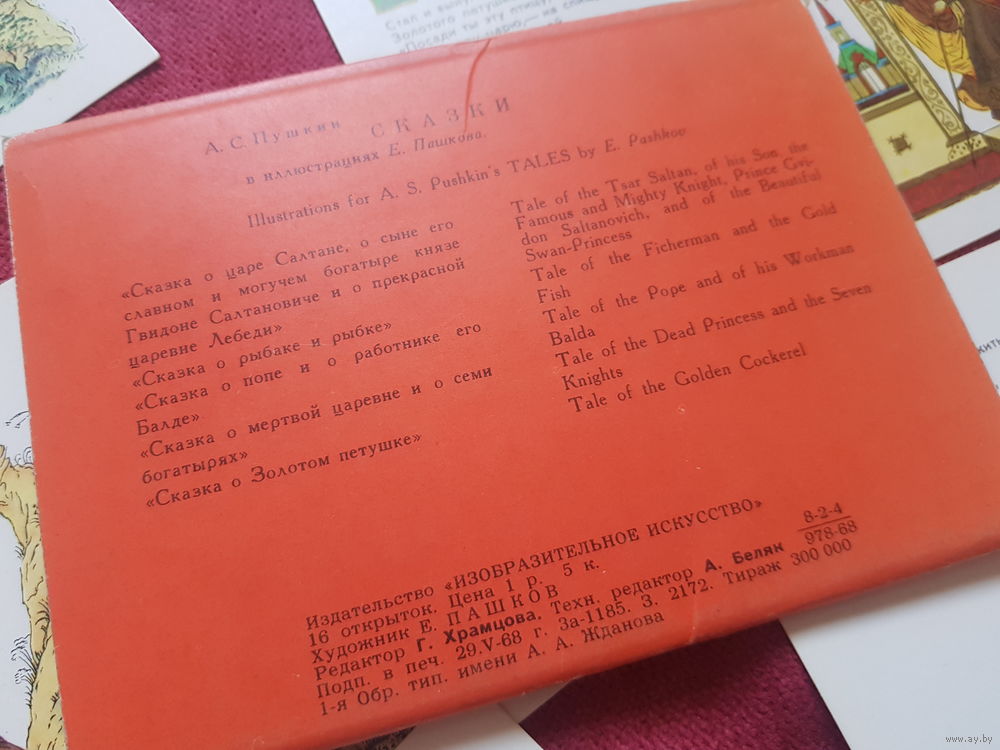 Стал и выну
Золотого петушк
«Посади ты эту птицу
царю,— на спиц
А. С. Пушкин СКАЗКИ
в иллюстрациях Е. Пашкова.
Illustrations for A. S. Pushkin's TALES by E. Pashkov
«Сказка о царе Салтане, о сыне его
славном и могучем богатыре князе
Гвидоне Салтановиче и о прекрасной
царевне Лебеди»
«Сказка о рыбаке и рыбке»
«Сказка о попе и о работнике его
Балде»
«Сказка о мертвой царевне и о семи
богатырях»
«Сказка о Золотом петушке»
Tale of the Tsar Saltan, of his Son the
Famous and Mighty Knight, Prince Gvi-
don Saltanovich, and of the Beautiful
Swan-Princess
Tale of the Ficherman and the Gold
Fish
Tale of the Pope and of his Workman
Balda
Tale of the Dead Princess and the Seven
Knights
Tale of the Golden Cockerel
Издательство «ИЗОБРАЗИТЕЛЬНОЕ ИСКУССТВО»
16 открыток. Цена 1 р. 5 к.
Художник Е. ПАШКОВ
Редактор Г. Храмцова. Техн. редактор А. Беляк
Подп. в печ. 29.V-68 г. За-1185. З. 2172. Тираж 300 000
1-я Обр. тип. имени А. А. Жданова
8-2-4
978-68
www.ay.by